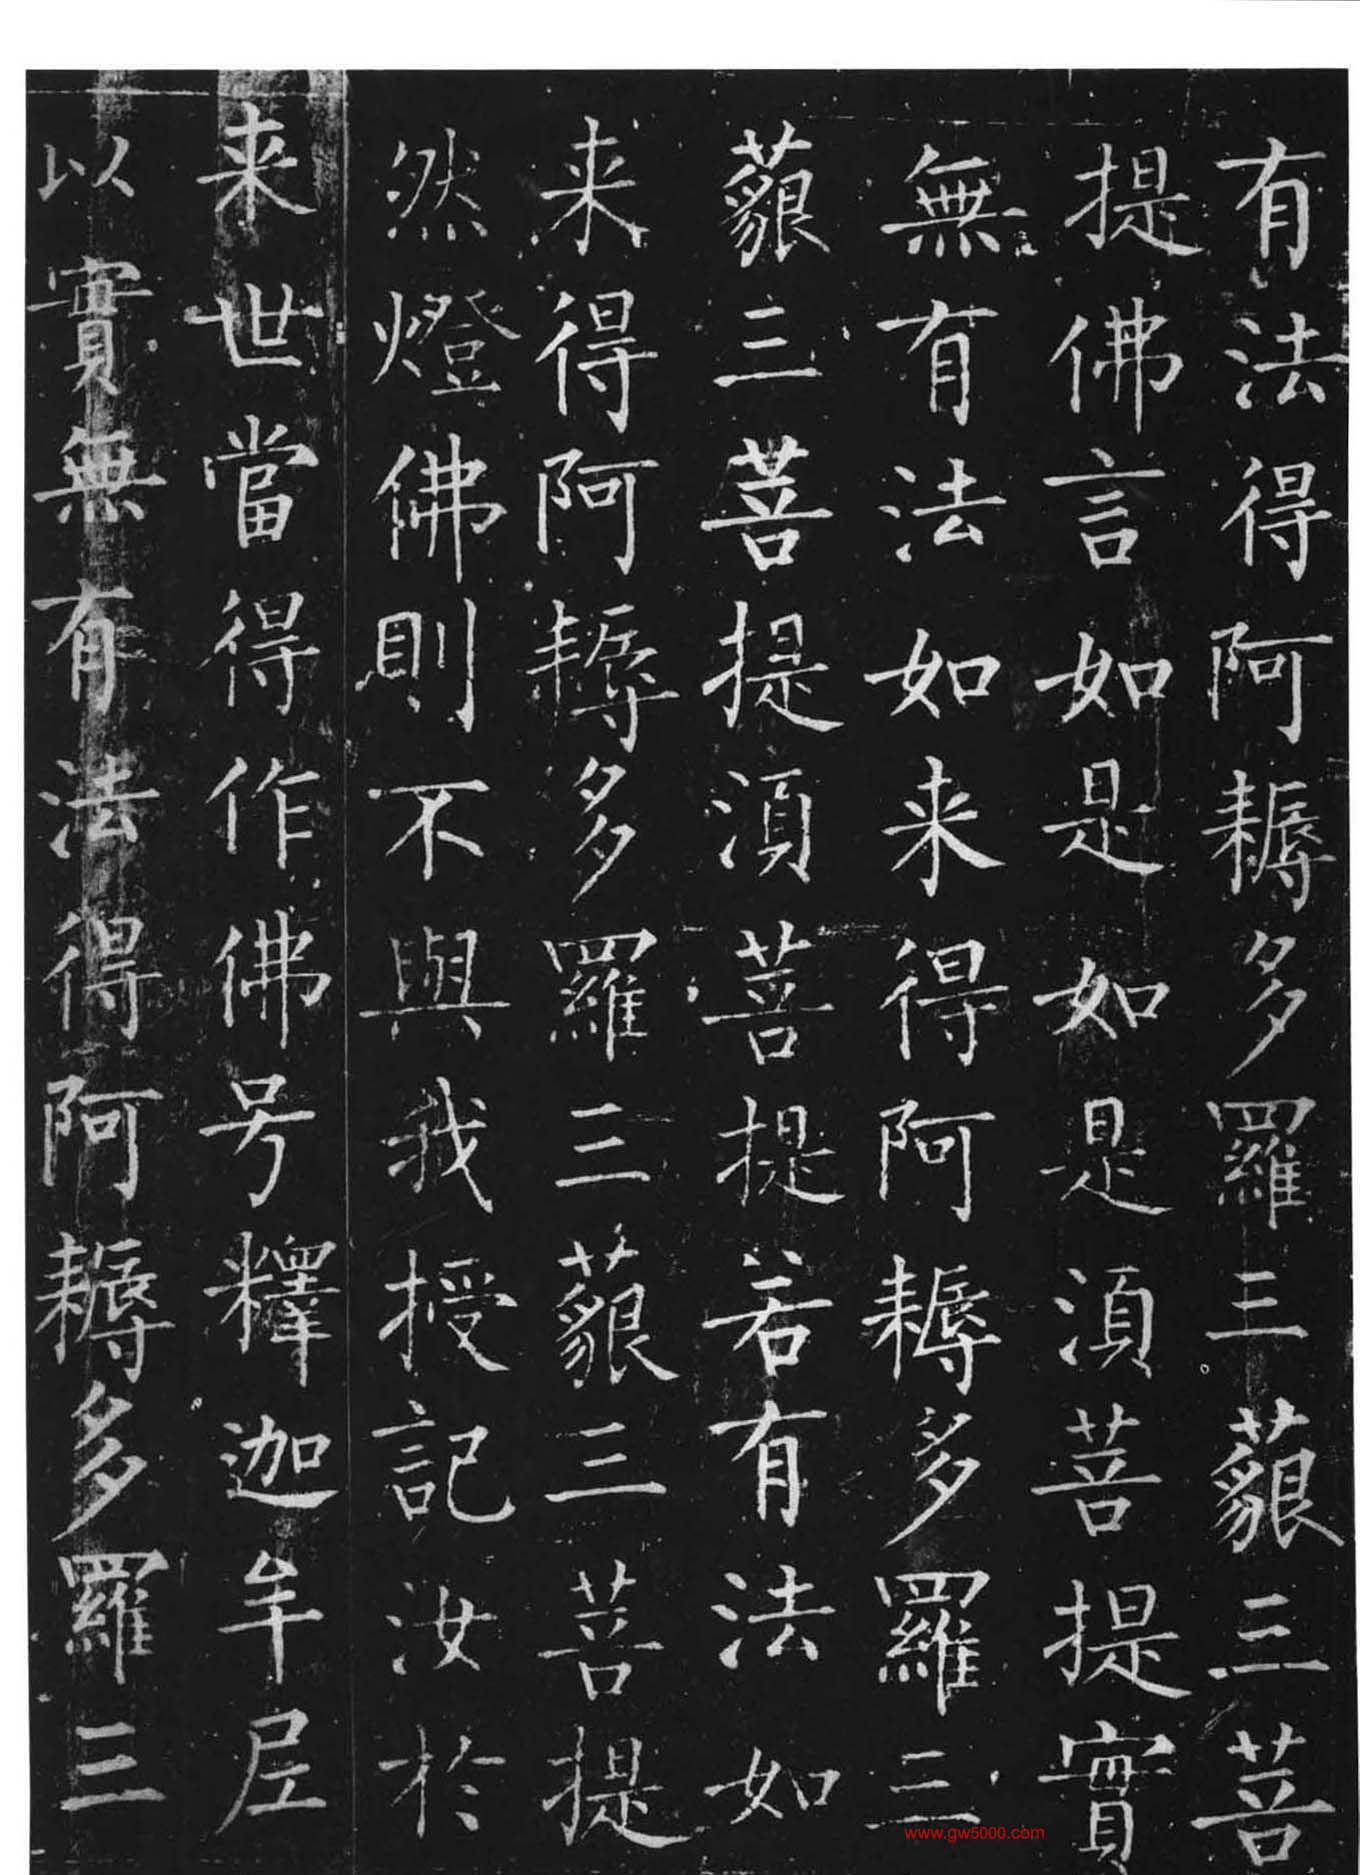 有法得阿耨多羅三藐三菩
提佛言如是如是湏菩提實
無有法如来得阿耨多羅三
藐三菩提湏菩提若有法如
来得阿耨多羅三藐三菩提
然燈佛則不與我授記汝於
来世當得作佛号釋迦牟尼
以實無有法得阿耨多羅三
www.gw5000.com